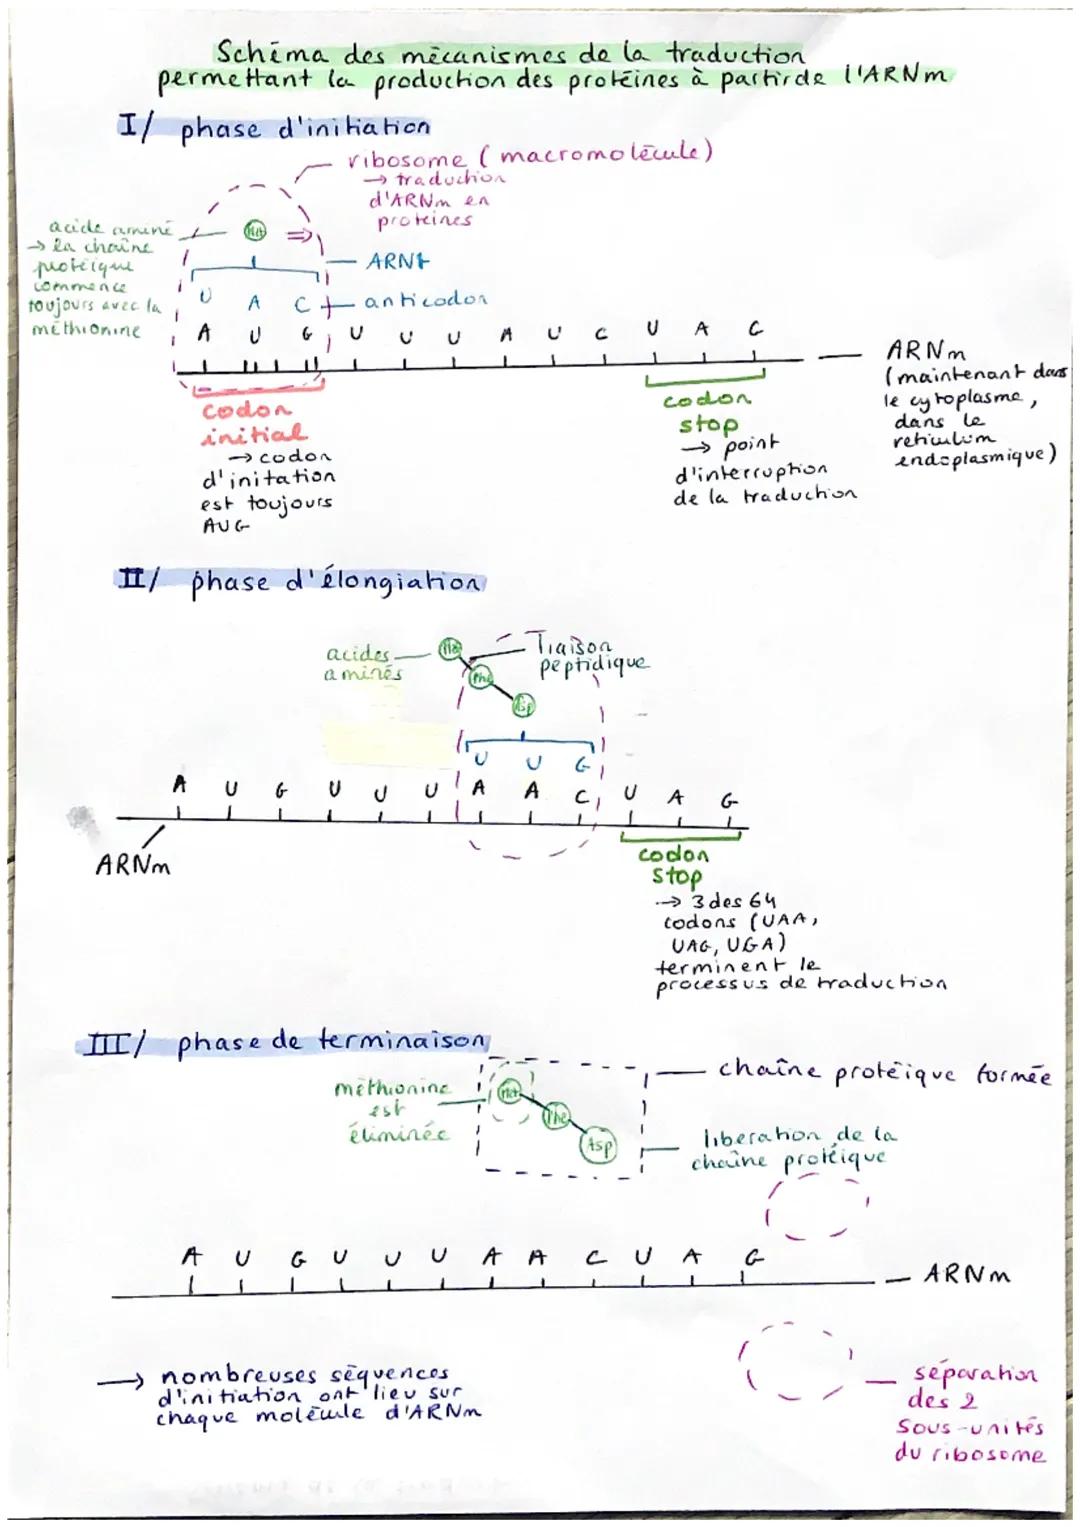 Schéma des mécanismes de la traduction
permettant la production des protéines à partir de l'ARNm
I/ phase d'initiation
ribosome (macromolécule)
→ traduction
d'ARNm en
protéines
acide aminé
→ la chaîne
protéique
commence
toujours avec la
méthionine
Met
ARNt
U A C
anticodon
A U G U U U A U C U A C
ARNm
(maintenant dans
le cytoplasme,
dans le
reticulum
endoplasmique)
codon
initial
→ codon
d'initation
est toujours
AUG
codon
stop
→ point
d'interruption
de la traduction
II/ phase d'élongiation
acides
aminés
Met
Phe
Asp
liaison
peptidique
U U G
A U G U U U A A C U A G
ARNm
codon
stop
→ 3 des 64
codons (UAA,
UAG, UGA)
terminent le
processus de traduction
III/ phase de terminaison
méthionine
est
éliminée
Met
Phe
Asp
chaîne protéique formée
libération de la
chaîne protéique
A U G U U U A A C U A G
ARNm
→ nombreuses séquences
d'initiation ont lieu sur
chaque molécule d'ARNm
séparation
des 2
sous-unités
du ribosome